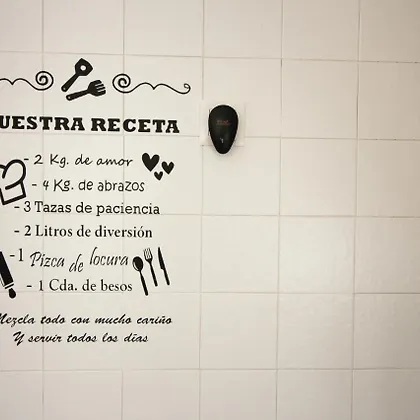 UESTRA RECETA
- 2 Kg. de amor
- 4 Kg. de abrazos
- 3 Tazas de paciencia
- 2 Litros de diversión
- 1 Pizca de locura
- 1 Cda. de besos
Mezcla todo con mucho cariño
Y servir todos los días